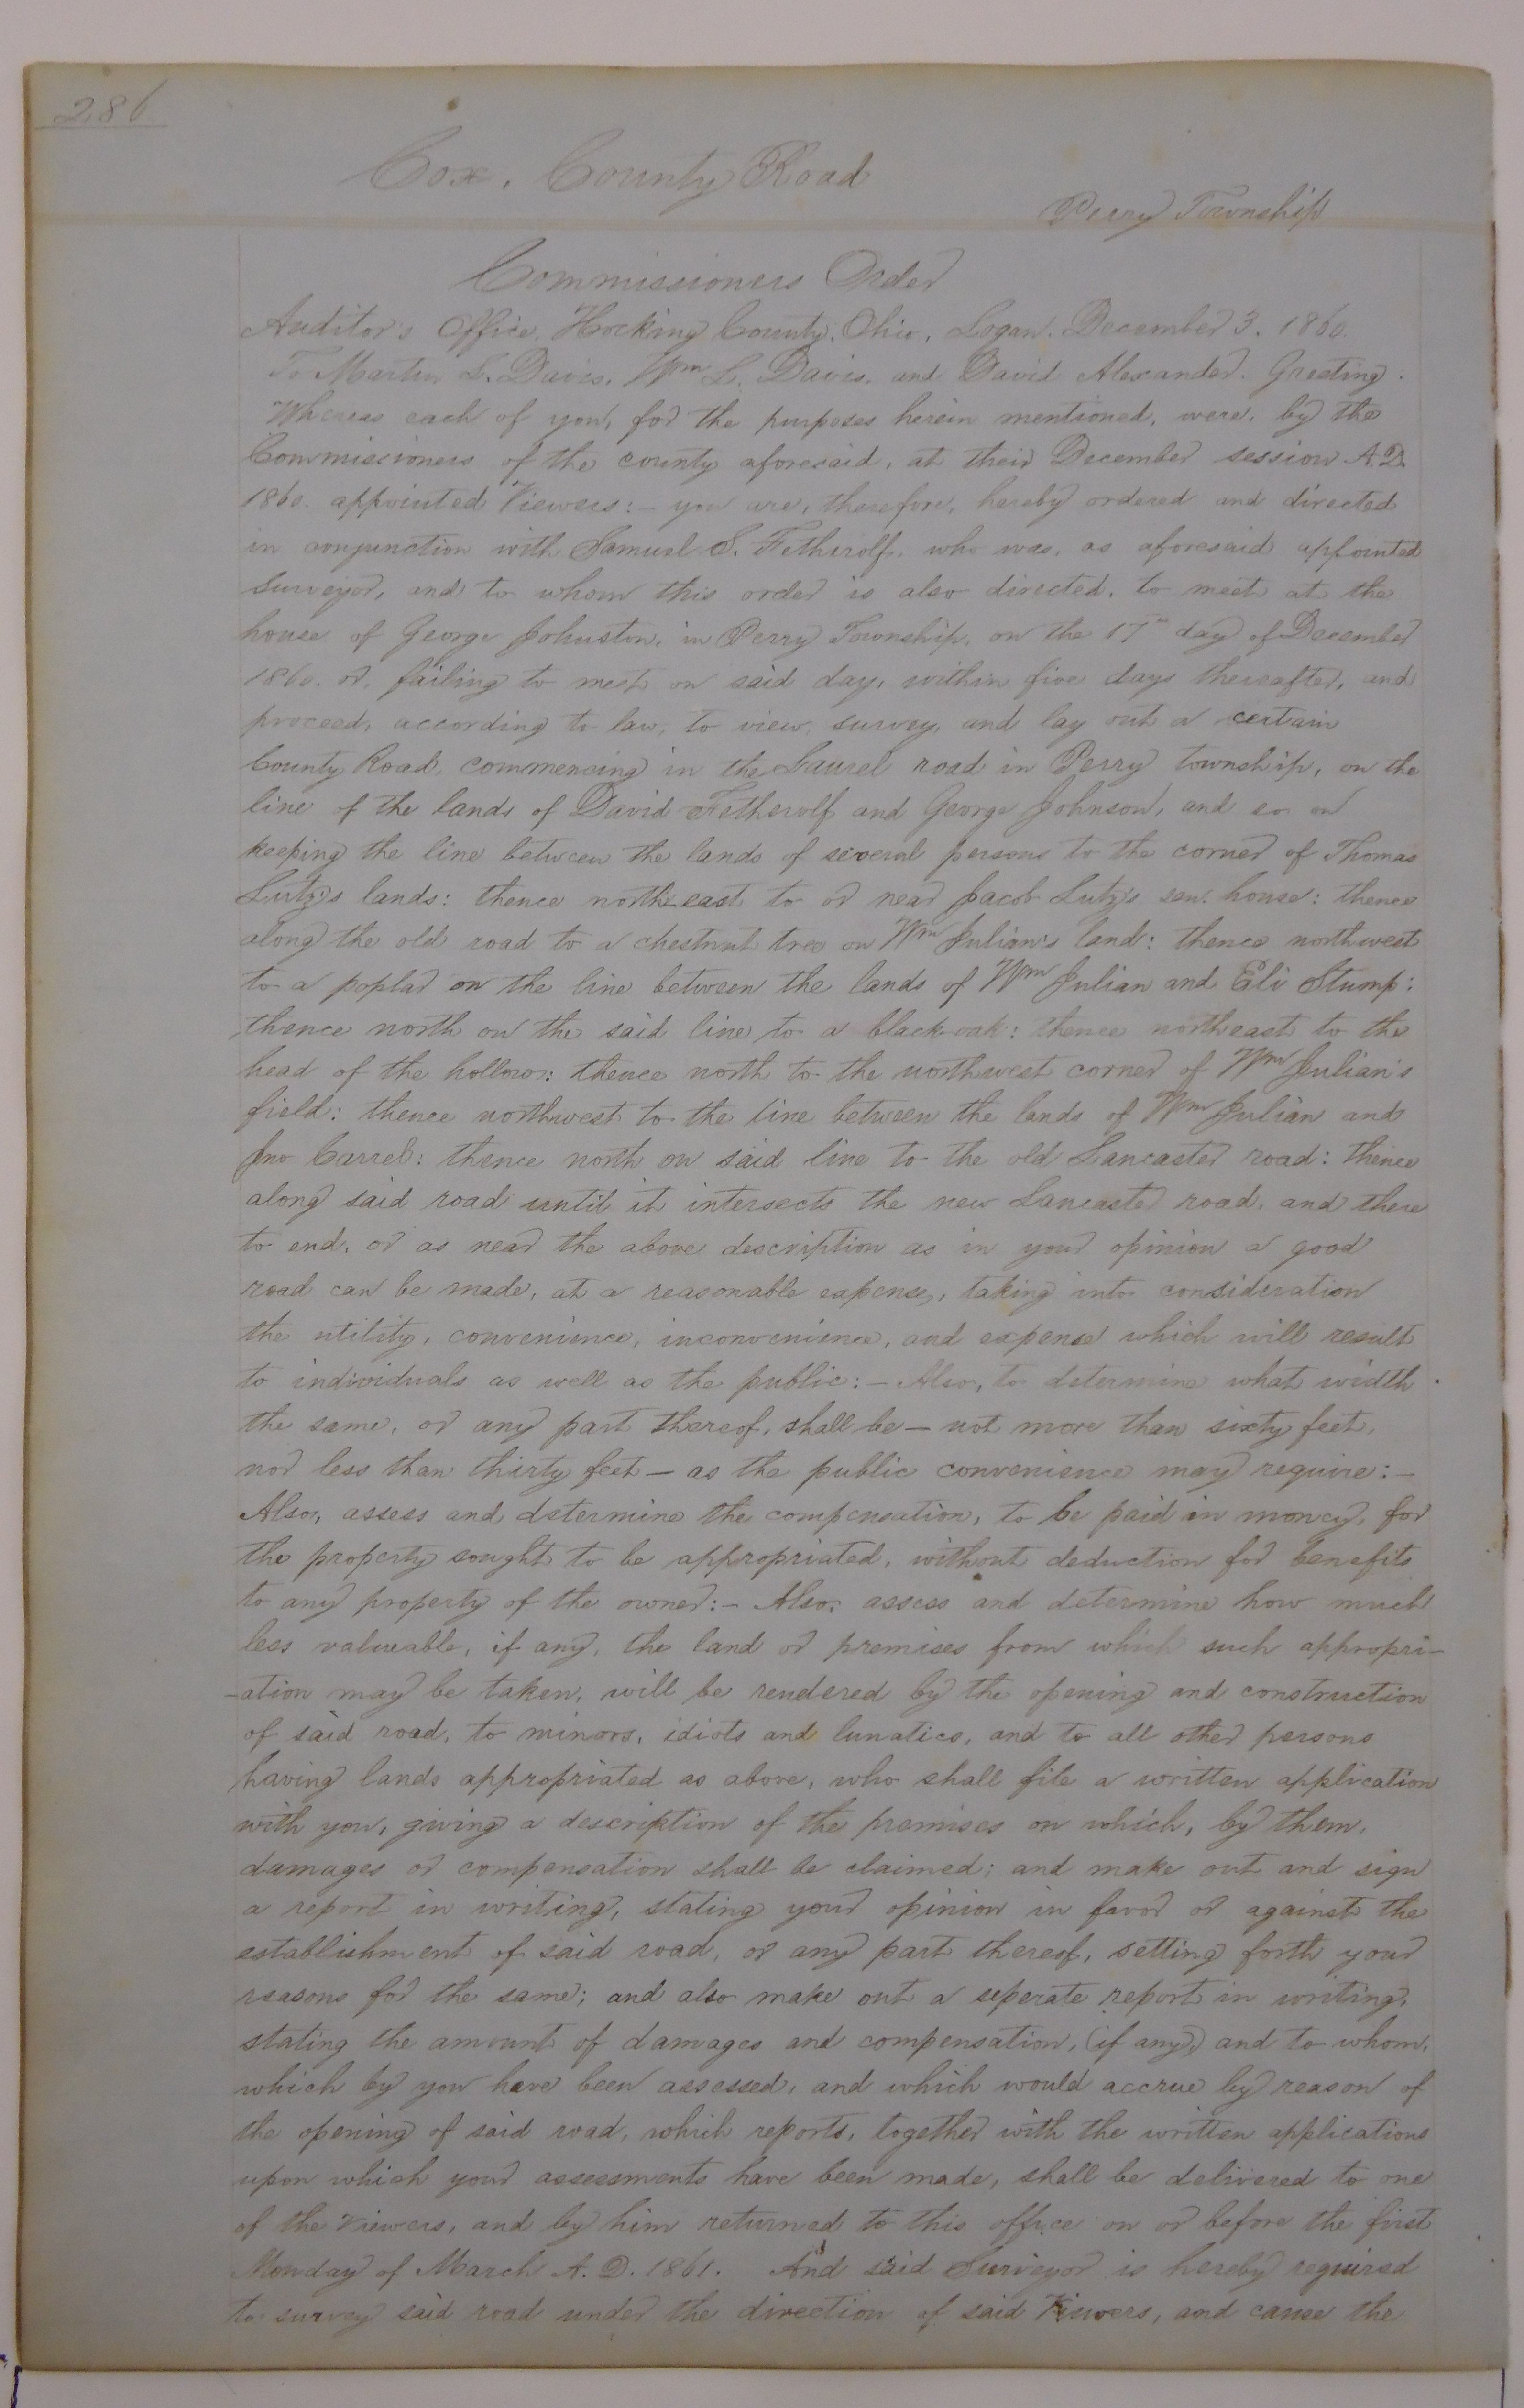 286
Cox. County Road
Perry Township
Commissioners Order
Auditor's Office, Hocking County, Ohio, Logan. December 3. 1860.
To Martin L. Davis, Wm L. Davis, and David Alexander. Greeting.
Whereas each of you, for the purposes herein mentioned, were, by the
Commissioners of the county aforesaid, at their December session A.D.
1860. appointed Viewers:- you are, therefore, hereby ordered and directed
in conjunction with Samuel S. Fetherolf, who was, as aforesaid appointed
Surveyor, and to whom this order is also directed, to meet at the
house of George Johnston, in Perry Township, on the 17th day of December
1860. or, failing to meet on said day, within five days thereafter, and
proceed, according to law, to view, survey, and lay out a certain
County Road, commencing in the Laurel road in Perry township, on the
line of the lands of David Fetherolf and George Johnson, and so on
keeping the line between the lands of several persons to the corner of Thomas
Lutz's lands: thence north-east to or near Jacob Lutz's sen. house: thence
along the old road to a chestnut tree on Wm Julian's land: thence northwest
to a poplar on the line between the lands of Wm Julian and Eli Stump:
thence north on the said line to a black-oak: thence northeast to the
head of the hollow: thence north to the northwest corner of Wm Julian's
field: thence northwest to the line between the lands of Wm Julian and
Jno Carrel: thence north on said line to the old Lancaster road: thence
along said road until it intersects the new Lancaster road, and there
to end, or as near the above description as in your opinion a good
road can be made, at a reasonable expense, taking into consideration
the utility, convenience, inconvenience, and expense which will result
to individuals as well as the public:- Also, to determine what width
the same, or any part thereof, shall be - not more than sixty feet,
nor less than thirty feet - as the public convenience may require:-
Also, assess and determine the compensation, to be paid in money, for
the property sought to be appropriated, without deduction for benefits
to any property of the owner:- Also, assess and determine how much
less valueable, if any, the land or premises from which such appropri-
-ation may be taken, will be rendered by the opening and construction
of said road, to minors, idiots and lunatics, and to all other persons
having lands appropriated as above, who shall file a written application
with you, giving a description of the premises on which, by them,
damages or compensation shall be claimed; and make out and sign
a report in writing, stating your opinion in favor or against the
establishment of said road, or any part thereof, setting forth your
reasons for the same; and also make out a seperate report in writing,
stating the amount of damages and compensation, (if any,) and to whom,
which by you have been assessed, and which would accrue by reason of
the opening of said road, which reports, together with the written applications
upon which your assessments have been made, shall be delivered to one
of the Viewers, and by him returned to this office on or before the first
Monday of March A.D. 1861. And said Surveyor is hereby required
to survey said road under the direction of said Viewers, and cause the